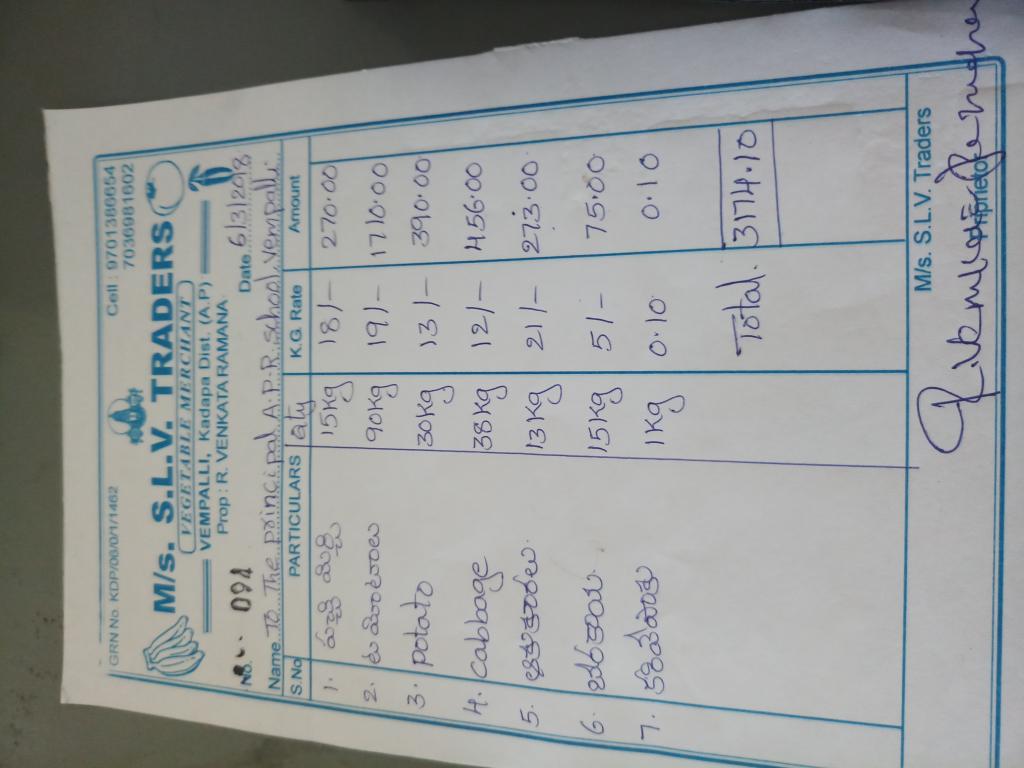 GRN No. KDP/08/0/1/1462 Cell : 9701386654
7036981602
M/s. S.L.V. TRADERS
VEGETABLE MERCHANT
VEMPALLI, Kadapa Dist. (A.P)
Prop : R. VENKATARAMANA
No. 094 Date 6/3/2018
Name To The principal A.P.R. School, Vempalli.
S.No PARTICULARS Qty K.G. Rate Amount
1. పచ్చి మిర్చి 15kg 18/- 270.00
2. టమోటాలు 90kg 19/- 1710.00
3. potato 30kg 13/- 390.00
4. Cabbage 38kg 12/- 456.00
5. 13kg 21/- 273.00
6. 15kg 5/- 75.00
7. కరివేపాకు 1kg 0.10 0.10
Total. 3174.10
M/s. S.L.V. Traders
Proprietor